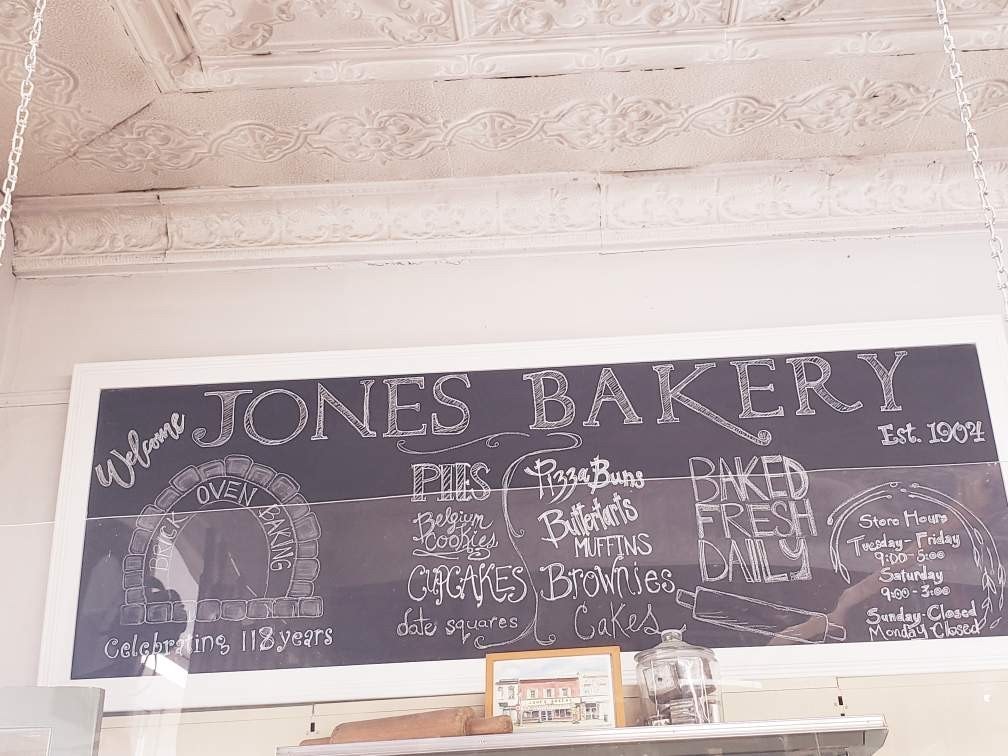 Welcome
JONES BAKERY
Est. 1904
BRICK OVEN BAKING
Celebrating 118 years
PIES
Belgium
Cookies
CUPCAKES
date squares
Pizza Buns
Buttertarts
MUFFINS
Brownies
Cakes
BAKED
FRESH
DAILY
Store Hours
Tuesday - Friday
9:00 - 5:00
Saturday
9:00 - 3:00
Sunday - Closed
Monday - Closed
JONES BAKERY